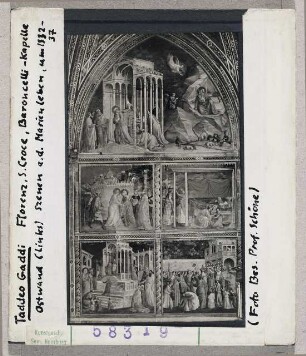 Taddeo Gaddi Florenz, S. Croce, Baroncelli-Kapelle
Ostwand (links) Szenen a.d. Marienleben, um 1332-
37
(Foto Bes. Prof. Schöne)
58319